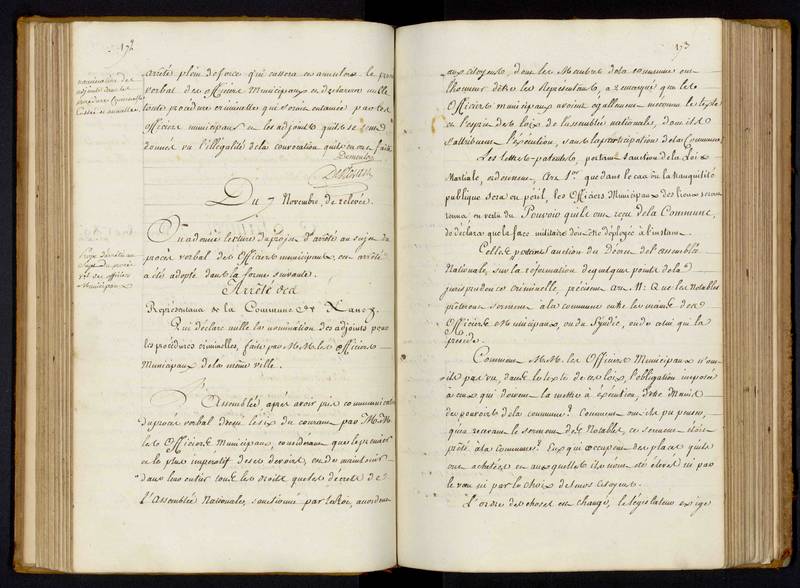 172
nomination des
adjoints dans les
procédures criminelles
Cassée et annullée.
arrêté plein de force qui cassera et annulera le procès
verbal des Officiers Municipaux et declarera nulle
toute procédure criminelle qui seroit entamée par les
Officiers municipaux et les adjoints qu'ils se sont
donnés vu l'illégalité de la convocation qu'ils en ont faite
Du 7 Novembre, de relevée.
au sujet du procès
verbal des officiers
Municipaux
On a donné lecture du projet d'arrêté au sujet du
procès verbal des Officiers municipaux, cet arrêté
a été adopté dans la forme suivante.
Arrêté des
Représentans de la Commune de
Qui déclare nulle la nomination des adjoints pour
les procédures criminelles, faite par M.M. les Officiers
Municipaux de la même ville.
L'Assemblée après avoir pris communication
du procès verbal dressé le six du courant par M.M.
les Officiers Municipaux, considérant que le premier
et le plus impératif de ses devoirs, est de maintenir
dans leur entier tous les droits que les décrets de
l'Assemblée Nationale, sanctionnés par le Roi, accordent
173
aux citoyens, dont les Membres de la commune ont
l'honneur d'être les Représentans, a remarqué que les
Officiers municipaux avoient également méconnu le texte
et l'esprit des loix de l'assemblée nationale, dont ils
s'attribuent l'exécution, sans la participation de la Commune.
Les lettres-patentes, portant sanction de la Loi
Martiale, ordonnent Art. 1er que dans le cas où la tranquilité
publique sera en péril, les Officiers Municipaux des lieux seront
tenus en vertu du Pouvoir qu'ils ont reçu de la Commune,
de déclarer que la force militaire doit être déployée à l'instant.
Celles portant sanction du Décret de l'assemblée
Nationale, sur la réformation de quelques points de la
jurisprudence criminelle, précisent art. II: Que les Notables
prêteront serment à la commune entre les mains des
Officiers Municipaux, ou du Syndic, ou de celui qui la
préside.
Comment M.M. les Officiers Municipaux n'ont-
ils pas vu, dans le texte de ces loix, l'obligation imposée
à ceux qui doivent la mettre à exécution, d'être Munis
des pouvoirs de la commune? Comment ont-ils pu penser,
qu'en recevant le serment des Notables, ce serment étoit
prêté à la Commune? Eux qui occupent des places qu'ils
ont achetées et auxquelles ils n'ont été élevés ni par
le vœu ni par le choix de leurs Citoyens.
L'ordre des choses est changé, le législateur exige